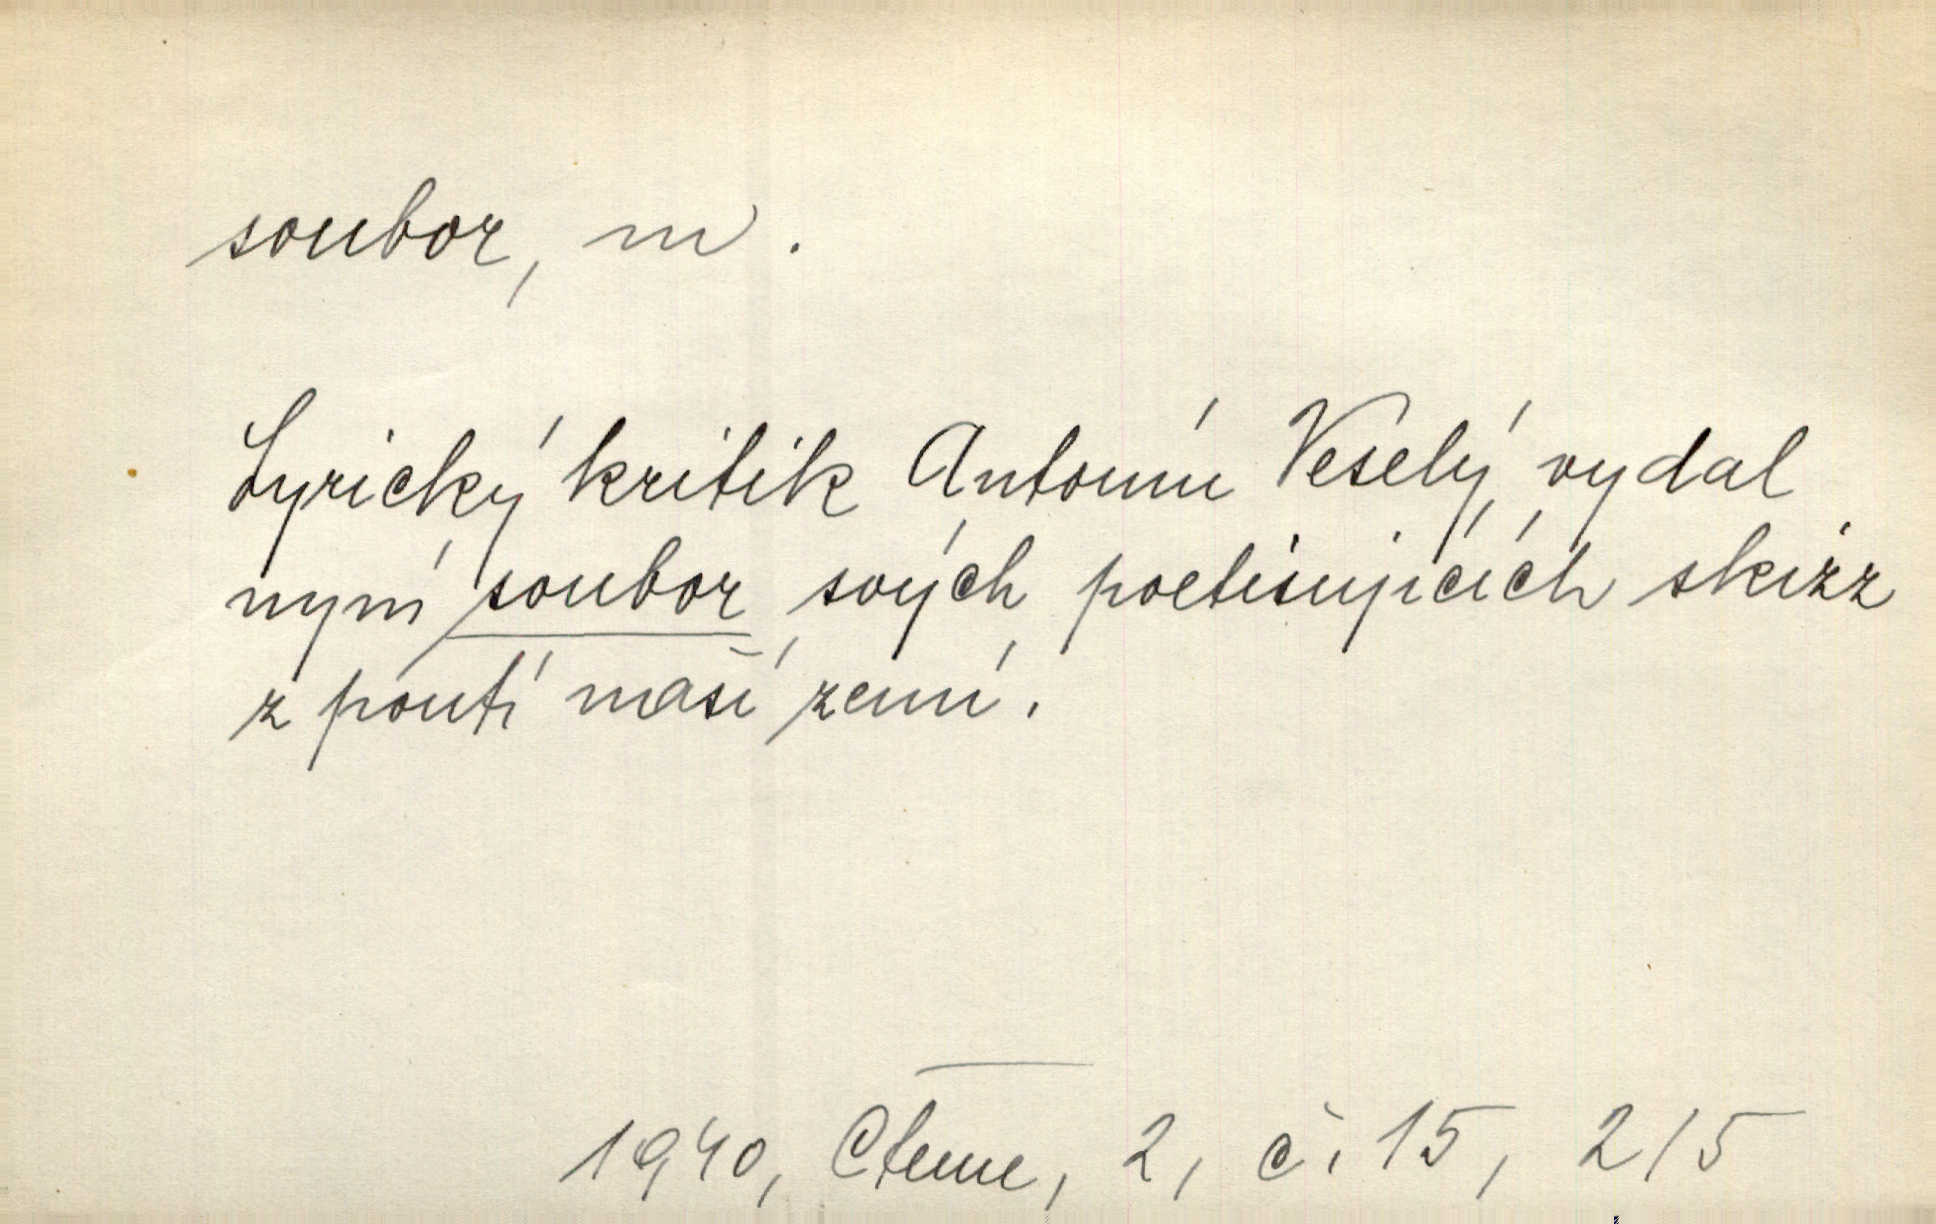 soubor, m.
Lyrický kritik Antonín Veselý vydal
nyní soubor svých poetisujících skizz
z poutí naší zemí.
1940, Čteme, 2, č. 15, 215